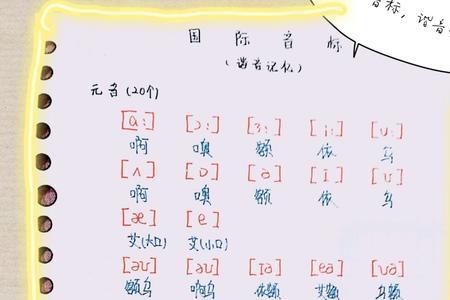 音标，谐音
国际音标
(谐音记忆)
元音(20个)
[ɑː] [ɔː] [ɜː] [iː] [uː]
啊 噢 额 依 乌
[ʌ] [ɒ] [ə] [ɪ] [ʊ]
啊 噢 额 依 乌
[æ] [e]
艾(大口) 艾(小口)
[əʊ] [aʊ] [ɪə] [eə] [ʊə]
额乌 啊乌 依额 艾额 乌额